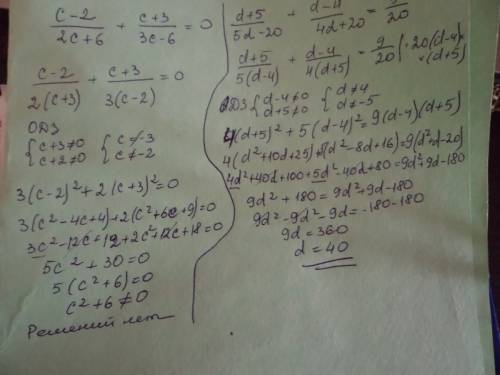 (c-2)/(2c+6) + (c+3)/(3c-6) = 0
(c-2)/(2(c+3)) + (c+3)/(3(c-2)) = 0
ОДЗ
{ c+3≠0 { c≠-3
{ c+2≠0 { c≠-2
3(c-2)²+2(c+3)²=0
3(c²-4c+4)+2(c²+6c+9)=0
3c²-12c+12+2c²+12c+18=0
5c²+30=0
5(c²+6)=0
c²+6≠0
Решений нет
(d+5)/(5d-20) + (d-4)/(4d+20) = 9/20
(d+5)/(5(d-4)) + (d-4)/(4(d+5)) = 9/20 |·20(d-4)×
×(d+5)
ОДЗ { d-4≠0 { d≠4
{ d+5≠0 { d≠-5
4(d+5)²+5(d-4)²=9(d-4)(d+5)
4(d²+10d+25)+5(d²-8d+16)=9(d²+d-20)
4d²+40d+100+5d²-40d+80=9d²+9d-180
9d²+180=9d²+9d-180
9d²-9d²-9d=-180-180
9d=360
d=40